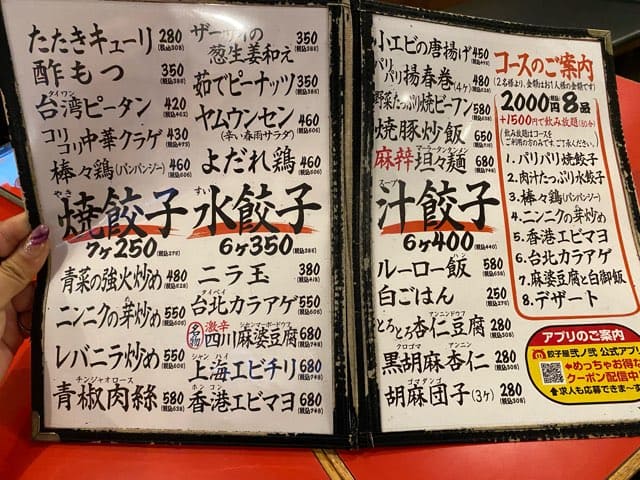 たたきキューリ 280 (税込308)
酢もつ 350 (税込385)
タイワン
台湾ピータン 420 (税込462)
コリコリ中華クラゲ 430 (税込473)
棒々鶏(バンバンジー) 460 (税込506)
やき
焼餃子
7ヶ250 (税込275)
青菜の強火炒め 480 (税込528)
ニンニクの芽炒め 550 (税込605)
レバニラ炒め 550 (税込605)
チンジャオロース
青椒肉絲 580 (税込638)
ザーサイの葱生姜和え 350 (税込385)
茹でピーナッツ 350 (税込385)
ヤムウンセン 460 (税込506)
(辛い春雨サラダ)
よだれ鶏 460 (税込506)
すい
水餃子
6ヶ350 (税込385)
ニラ玉 380 (税込418)
タイペイ
台北カラアゲ 550 (税込605)
名物 激辛
シセンマーボードウフ
四川麻婆豆腐 680 (税込748)
シャンハイ
上海エビチリ 680 (税込748)
ホンコン
香港エビマヨ 680 (税込748)
小エビの唐揚げ 450 (税込495)
パリパリ揚春巻(4ヶ) 480 (税込528)
野菜たっぷり焼ビーフン 580 (税込638)
焼豚炒飯 650
マーラータンタンメン
麻辣坦々麺 680 (税込748)
スープ
汁餃子
6ヶ400 (税込440)
ルーロー飯 580 (税込638)
白ごはん 250 (税込275)
アンニンドウフ
とろとろ杏仁豆腐 280 (税込308)
クロゴマ アンニン
黒胡麻杏仁 280 (税込308)
ゴマダンゴ
胡麻団子(3ヶ) 280 (税込308)
コースのご案内
(2名様より、金額はお1人様の金額です)
2000円 8品
+1500円で飲み放題(90分)
飲み放題はコースを
ご利用の方のみです。ご了承ください。
1. パリパリ焼餃子
2. 肉汁たっぷり水餃子
3. 棒々鶏(バンバンジー)
4. ニンニクの芽炒め
5. 香港エビマヨ
6. 台北カラアゲ
7. 麻婆豆腐と白御飯
8. デザート
アプリのご案内
餃子屋弐ノ弐 公式アプリ
⬅めっちゃお得な
クーポン配信中
⬆求人も応募できま〜す